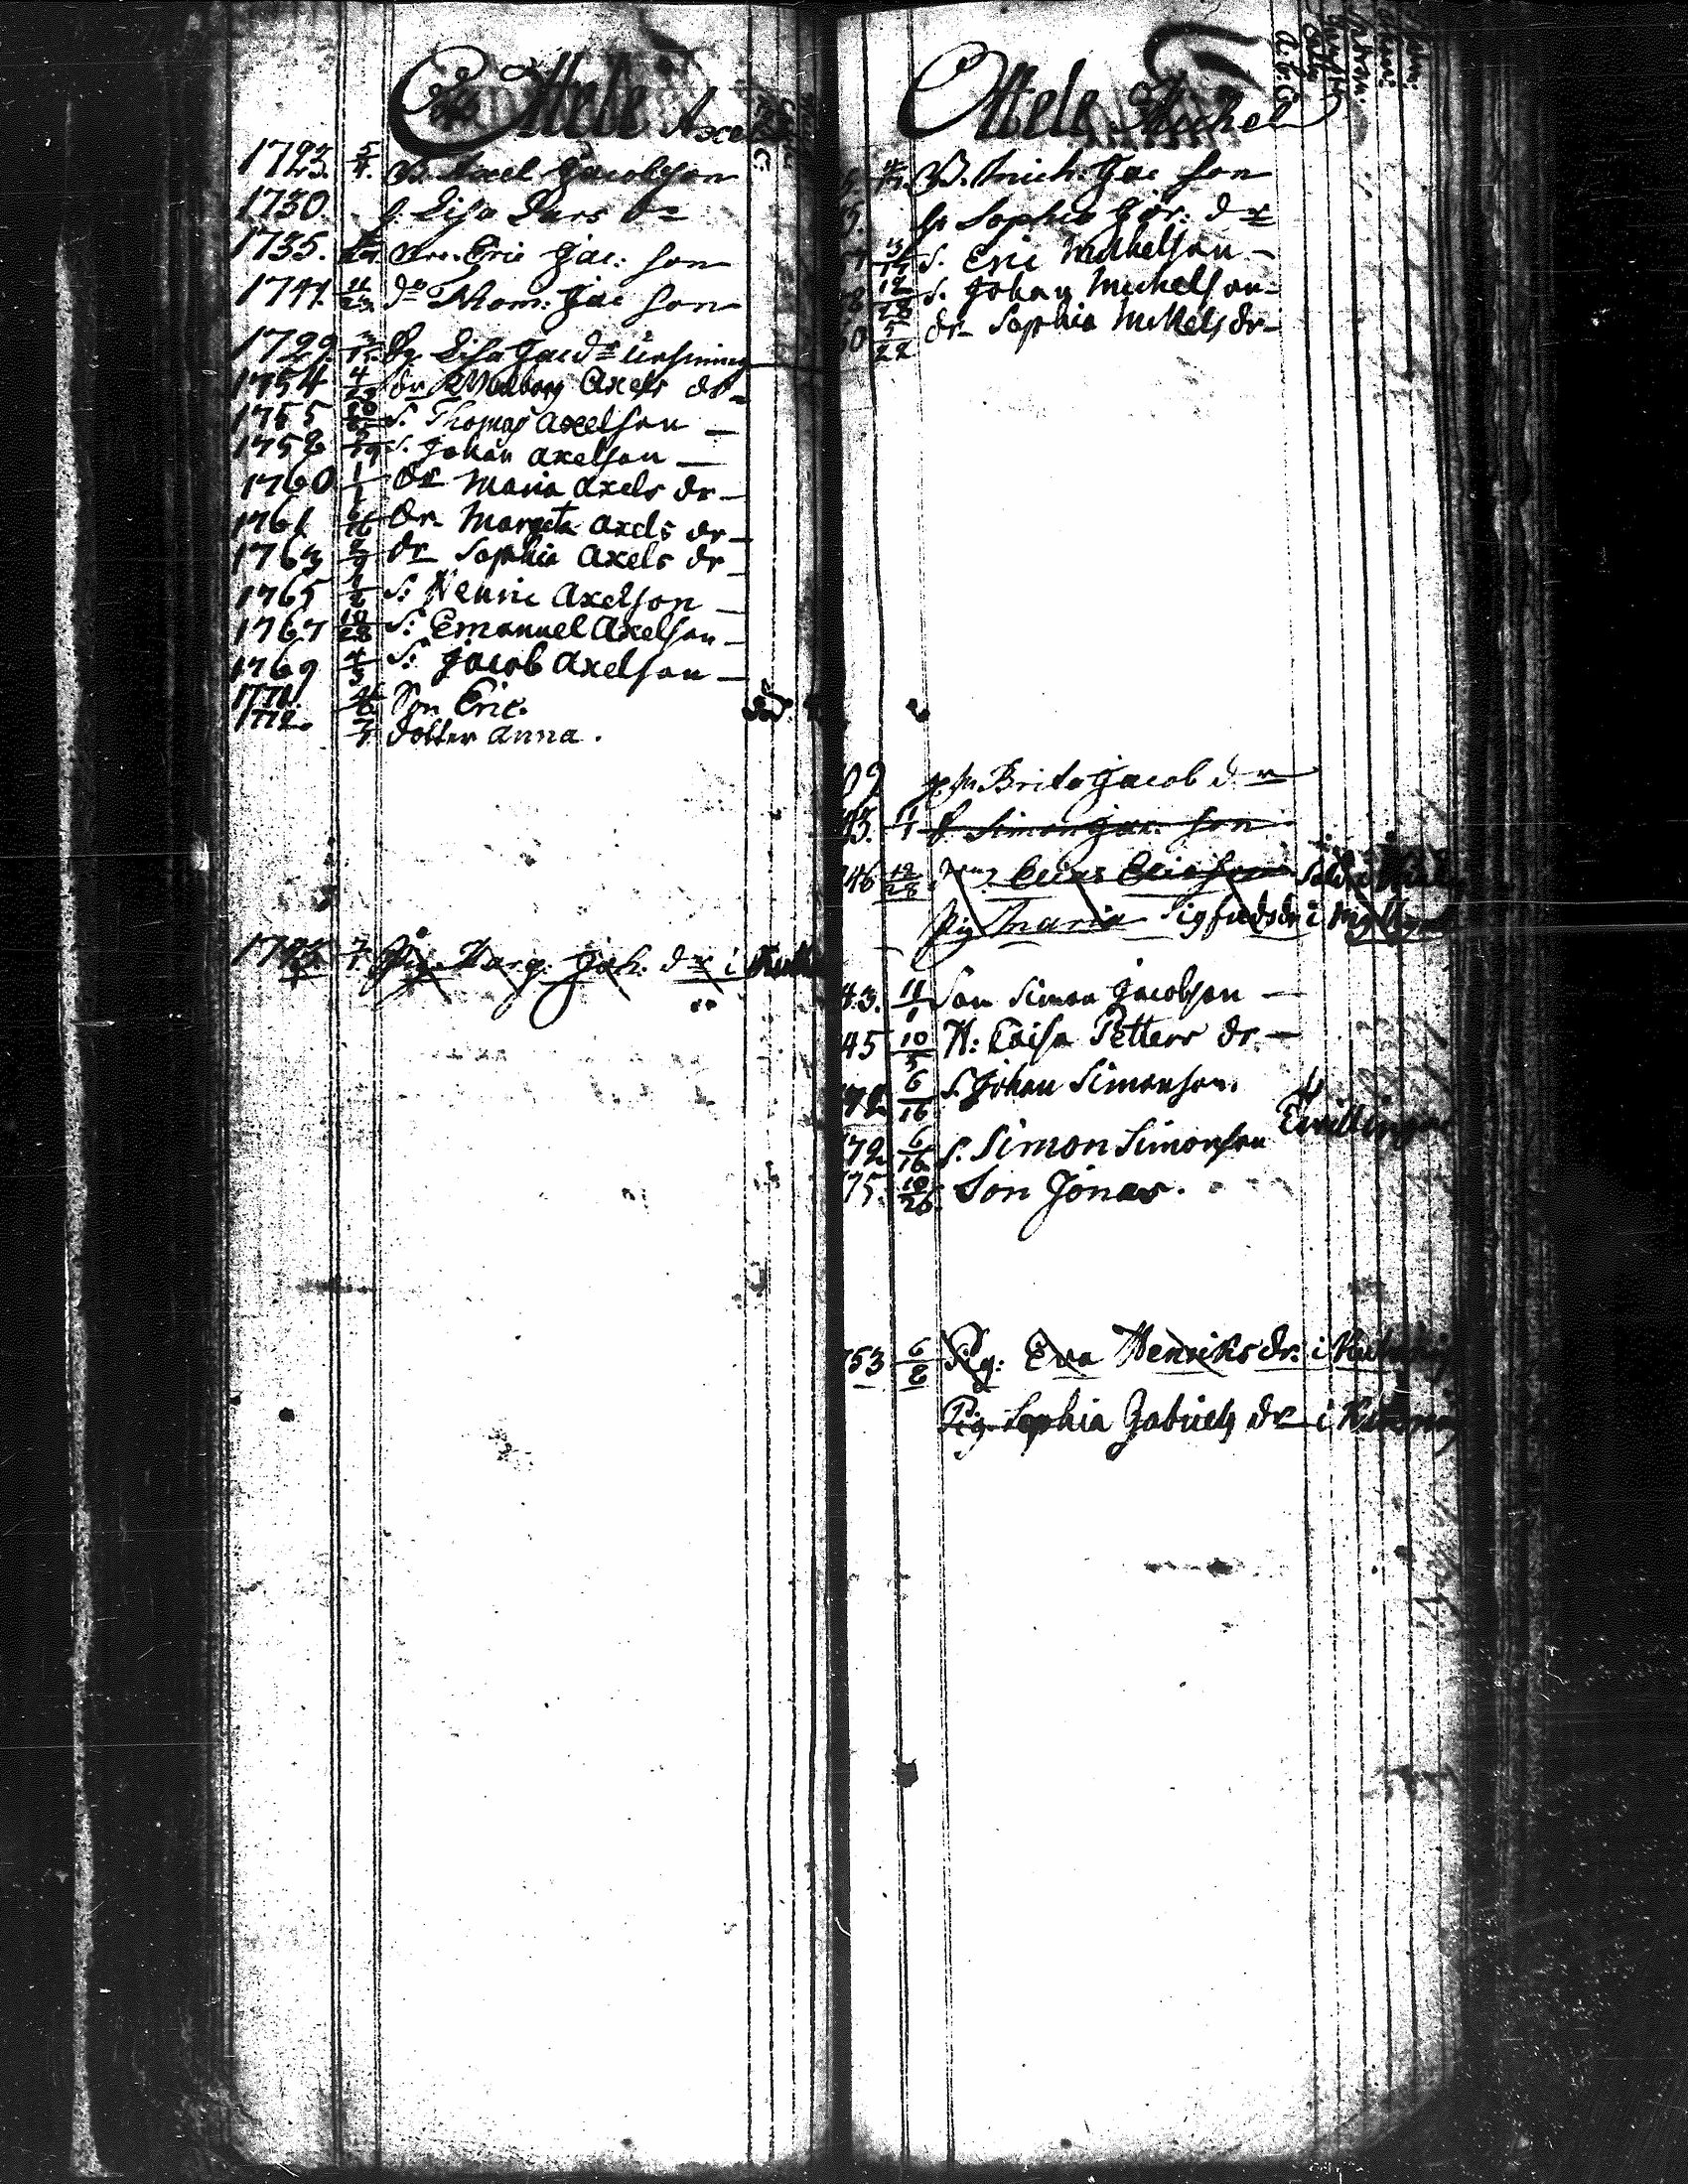 Ottele Axel
1723. 5/4. B. Axel Jacobson
1730. h. Lisa Lars dr
1735. Eric Jac: son
1741. 11/23 do Thom: Jac son
1729. Lisa Jac dr
1754 4/29 dr Walborg Axels dr
1755 S. Thomas Axelson
1758 S. Johan Axelson
1760 1/1 Dr Maria Axels dr
1761 Dr Margeta Axels dr
1763 dr Sophia Axels dr
1765 S: Henric Axelson
1767 10/28 S: Emanuel Axelson
1769 4/3 S: Jacob Axelson
1771. Son Eric.
1772. 7/7 dotter Anna.
Pig. Marg. Joh. dr i
Ottele Michel
B. Mich: Jac son
hu Sophia Jör: dr
S. Eric Michelson
12/28 S. Johan Michelson
5/22 dr Sophia Mickels dr
Brita Jacob dr
43. 11/1 S. Simon Jac. son
46 12/28 Elias Ericson Sold.
Pig Maria Sigfrids dr i
43. 11/1 Son Simon Jacobson
45 10/5 H: Caisa Petters dr
72 6/16 S. Johan Simonson.
Tvillingar
72 6/16 S. Simon Simonson
75. 10/26 Son Jonas.
753 6/8 Pig: Eva Henriks dr. i
Pig. Sophia Gabriels dr i